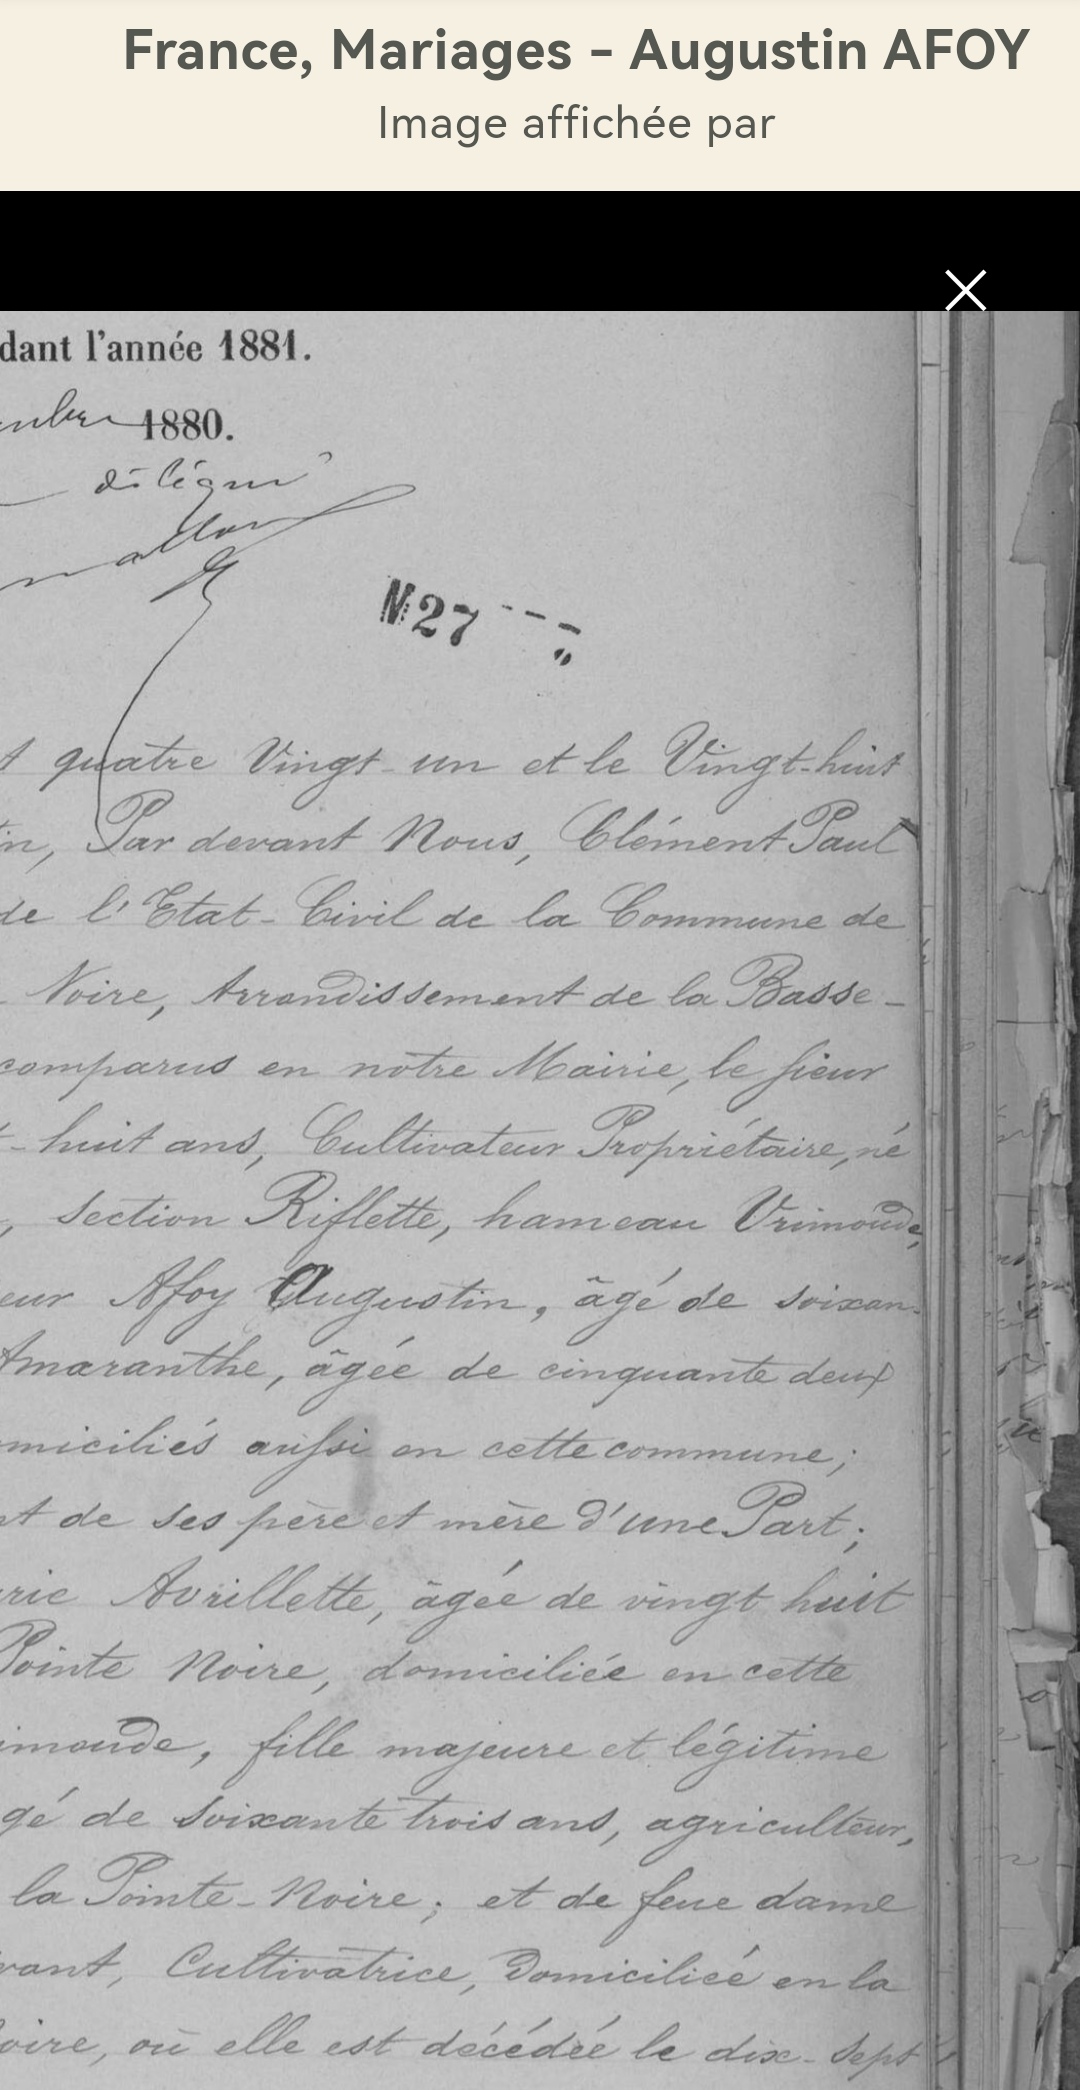 France, Mariages - Augustin AFOY
Image affichée par
dant l'année 1881.
1880.
délégué
N 27
t quatre Vingt-un et le Vingt-huit
in, Par devant Nous, Clément Paul
de l'Etat-Civil de la Commune de
Noire, Arrondissement de la Basse-
comparus en notre Mairie, le sieur
t-huit ans, Cultivateur Propriétaire, né
, section Riflette, hameau Vrimonde,
eur Afoy Augustin, âgé de soixan-
Amaranthe, âgée de cinquante deux
miciliés aussi en cette commune;
nt de ses père et mère d'une Part;
rie Avrillette, âgée de vingt huit
Pointe Noire, domiciliée en cette
imonde, fille majeure et légitime
gé de soixante trois ans, agriculteur,
la Pointe-Noire; et de feue dame
vant, Cultivatrice, Domiciliée en la
oire, où elle est décédée le dix-sept